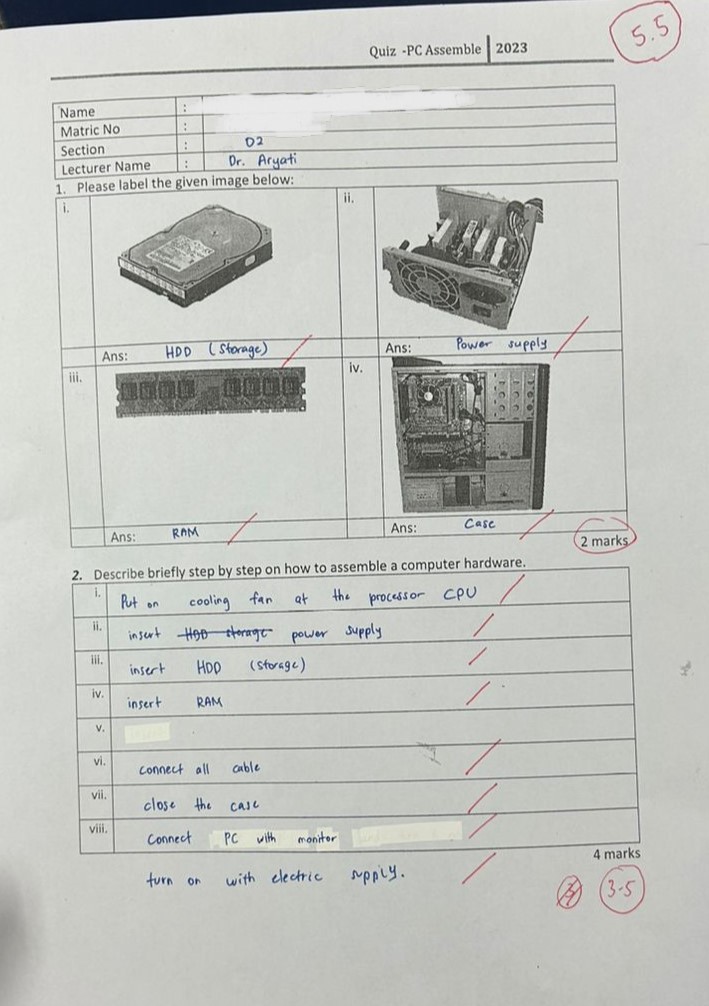 5.5
Quiz -PC Assemble 2023
Name :
Matric No :
Section : 02
Lecturer Name : Dr. Aryati
1. Please label the given image below:
i. ii.
Ans: HDD (Storage) Ans: Power supply
iii. iv.
Ans: RAM Ans: Case
2 marks
2. Describe briefly step by step on how to assemble a computer hardware.
i. Put on cooling fan at the processor CPU
ii. insert HDD storage power supply
iii. insert HDD (Storage)
iv. insert RAM
v.
vi. connect all cable
vii. close the case
viii. Connect PC with monitor
4 marks
turn on with electric supply.
3.5